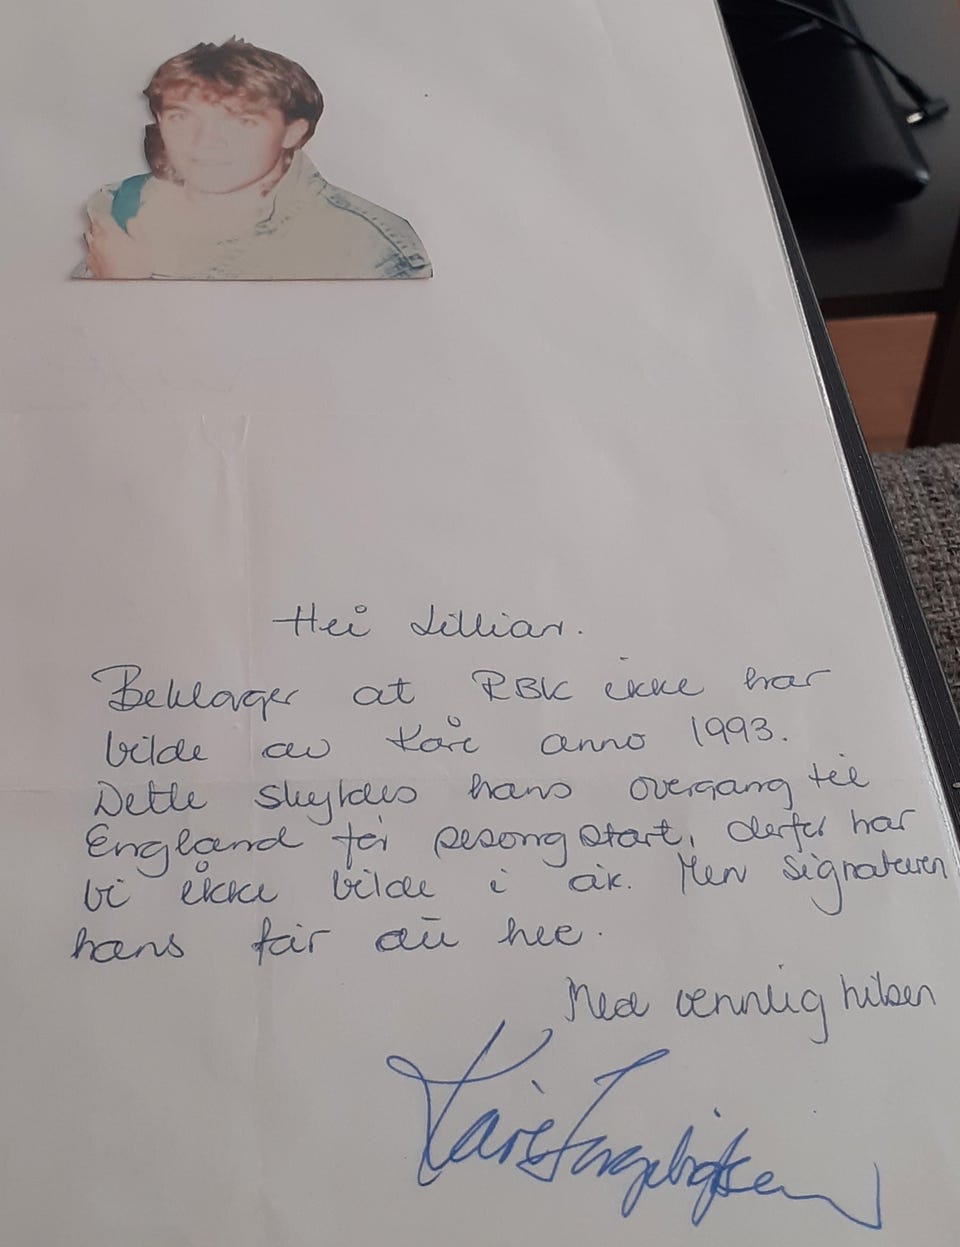 Hei Lillian.
Beklager at RBK ikke har
bilde av Kåre anno 1993.
Dette skyldes hans overgang til
England før sesong start, derfor har
vi ikke bilde i år. Men Signaturen
hans får du her.
Med vennlig hilsen
Kåre Ingebrigtsen